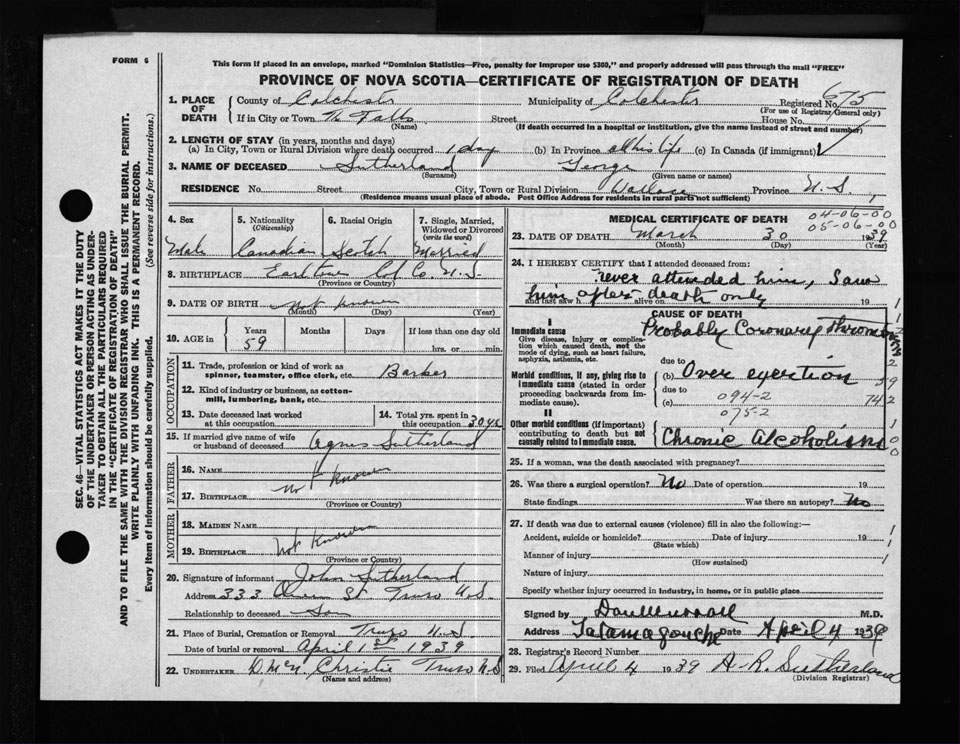 FORM 6
This form if placed in an envelope, marked "Dominion Statistics—Free, penalty for improper use $300," and properly addressed will pass through the mail "FREE"
PROVINCE OF NOVA SCOTIA—CERTIFICATE OF REGISTRATION OF DEATH
SEC. 46—VITAL STATISTICS ACT MAKES IT THE DUTY
OF THE UNDERTAKER OR PERSON ACTING AS UNDER-
TAKER TO OBTAIN ALL THE PARTICULARS REQUIRED
IN THE "CERTIFICATE OF REGISTRATION OF DEATH"
AND TO FILE THE SAME WITH THE DIVISION REGISTRAR WHO SHALL ISSUE THE BURIAL PERMIT.
WRITE PLAINLY WITH UNFADING INK. THIS IS A PERMANENT RECORD.
Every item of Information should be carefully supplied. (See reverse side for instructions.)
1. PLACE OF DEATH
County of Colchester Municipality of Colchester Registered No. 675
(For use of Registrar General only)
If in City or Town Falls Street House No.
(Name) (If death occurred in a hospital or institution, give the name instead of street and number)
2. LENGTH OF STAY (in years, months and days)
(a) In City, Town or Rural Division where death occurred 1 day (b) In Province all his life (c) In Canada (if immigrant)
3. NAME OF DECEASED Sutherland George
(Surname) (Given name or names)
RESIDENCE No. Street City, Town or Rural Division Wallace Province N.S.
(Residence means usual place of abode. Post Office Address for residents in rural parts not sufficient)
4. Sex 5. Nationality (Citizenship) 6. Racial Origin 7. Single, Married, Widowed or Divorced (write the word)
Male Canadian Scotch Married
8. BIRTHPLACE Earltown Col Co. N.S.
(Province or County)
9. DATE OF BIRTH Not Known
(Month) (Day) (Year)
10. AGE in Years Months Days If less than one day old
59 hrs. or min.
OCCUPATION
11. Trade, profession or kind of work as
spinner, teamster, office clerk, etc. Barber
12. Kind of industry or business, as cotton-
mill, lumbering, bank, etc.
13. Date deceased last worked
at this occupation
14. Total yrs. spent in
this occupation 30 yrs
15. If married give name of wife
or husband of deceased Agnes Sutherland
FATHER
16. NAME
Not Known
17. BIRTHPLACE
(Province or Country)
MOTHER
18. MAIDEN NAME
Not Known
19. BIRTHPLACE
(Province or Country)
20. Signature of informant John Sutherland
Address 333 Queen St Truro N.S.
Relationship to deceased Son
21. Place of Burial, Cremation or Removal Truro N.S
Date of burial or removal April 1st 1939
22. UNDERTAKER Christie Truro N.S
(Name and address)
MEDICAL CERTIFICATE OF DEATH
04-06-00
05-06-00
23. DATE OF DEATH March 30 1939
(Month) (Day) (Year)
24. I HEREBY CERTIFY that I attended deceased from:
never attended him, Saw
him after death only
and last saw h alive on 19
CAUSE OF DEATH
I
Immediate cause
Give disease, injury or complica-
tion which caused death, not the
mode of dying, such as heart failure,
asphyxia, asthenia, etc.
Probably Coronary Thrombosis
due to
Morbid conditions, if any, giving rise to
immediate cause (stated in order
proceeding backwards from im-
mediate cause).
(b) Over exertion
due to
(c) 094-2 74
075-2
II
Other morbid conditions (if important)
contributing to death but not
causally related to immediate cause.
Chronic Alcoholism
25. If a woman, was the death associated with pregnancy?
26. Was there a surgical operation? No Date of operation 19
State findings Was there an autopsy? No
27. If death was due to external causes (violence) fill in also the following:—
Accident, suicide or homicide? Date of injury 19
(State which)
Manner of injury
(How sustained)
Nature of injury
Specify whether injury occurred in industry, in home, or in public place
Signed by M.D.
Address Tatamagouche Date April 4 1939
28. Registrar's Record Number
29. Filed April 4 1939 A. R. Sutherland
(Division Registrar)